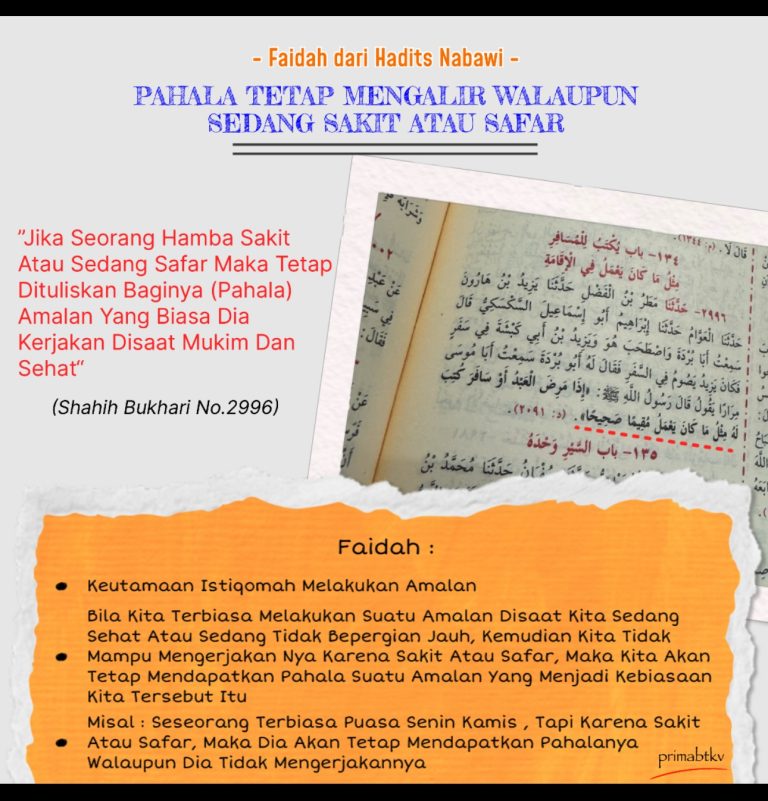 - Faidah dari Hadits Nabawi -
PAHALA TETAP MENGALIR WALAUPUN
SEDANG SAKIT ATAU SAFAR
”Jika Seorang Hamba Sakit
Atau Sedang Safar Maka Tetap
Dituliskan Baginya (Pahala)
Amalan Yang Biasa Dia
Kerjakan Disaat Mukim Dan
Sehat“
(Shahih Bukhari No.2996)
قَالَ لَا. (م: ١٣٤٤).
١٣٤- باب يُكْتَبُ لِلْمُسَافِرِ
مِثْلُ مَا كَانَ يَعْمَلُ فِي الْإِقَامَةِ
٢٩٩٦- حَدَّثَنَا مَطَرُ بْنُ الْفَضْلِ حَدَّثَنَا يَزِيدُ بْنُ هَارُونَ
حَدَّثَنَا الْعَوَّامُ حَدَّثَنَا إِبْرَاهِيمُ أَبُو إِسْمَاعِيلَ السَّكْسَكِيُّ قَالَ
سَمِعْتُ أَبَا بُرْدَةَ وَاصْطَحَبَ هُوَ وَيَزِيدُ بْنُ أَبِي كَبْشَةَ فِي سَفَرٍ
فَكَانَ يَزِيدُ يَصُومُ فِي السَّفَرِ فَقَالَ لَهُ أَبُو بُرْدَةَ سَمِعْتُ أَبَا مُوسَى
مِرَارًا يَقُولُ قَالَ رَسُولُ اللَّهِ ﷺ: «إِذَا مَرِضَ الْعَبْدُ أَوْ سَافَرَ كُتِبَ
لَهُ مِثْلُ مَا كَانَ يَعْمَلُ مُقِيمًا صَحِيحًا». (د: ٣٠٩١).
١٣٥- باب السَّيْرِ وَحْدَهُ
حَدَّثَنَا مُحَمَّدُ بْنُ
Faidah :
● Keutamaan Istiqomah Melakukan Amalan
Bila Kita Terbiasa Melakukan Suatu Amalan Disaat Kita Sedang
Sehat Atau Sedang Tidak Bepergian Jauh, Kemudian Kita Tidak
● Mampu Mengerjakan Nya Karena Sakit Atau Safar, Maka Kita Akan
Tetap Mendapatkan Pahala Suatu Amalan Yang Menjadi Kebiasaan
Kita Tersebut Itu
Misal : Seseorang Terbiasa Puasa Senin Kamis , Tapi Karena Sakit
● Atau Safar, Maka Dia Akan Tetap Mendapatkan Pahalanya
Walaupun Dia Tidak Mengerjakannya
primabtkv